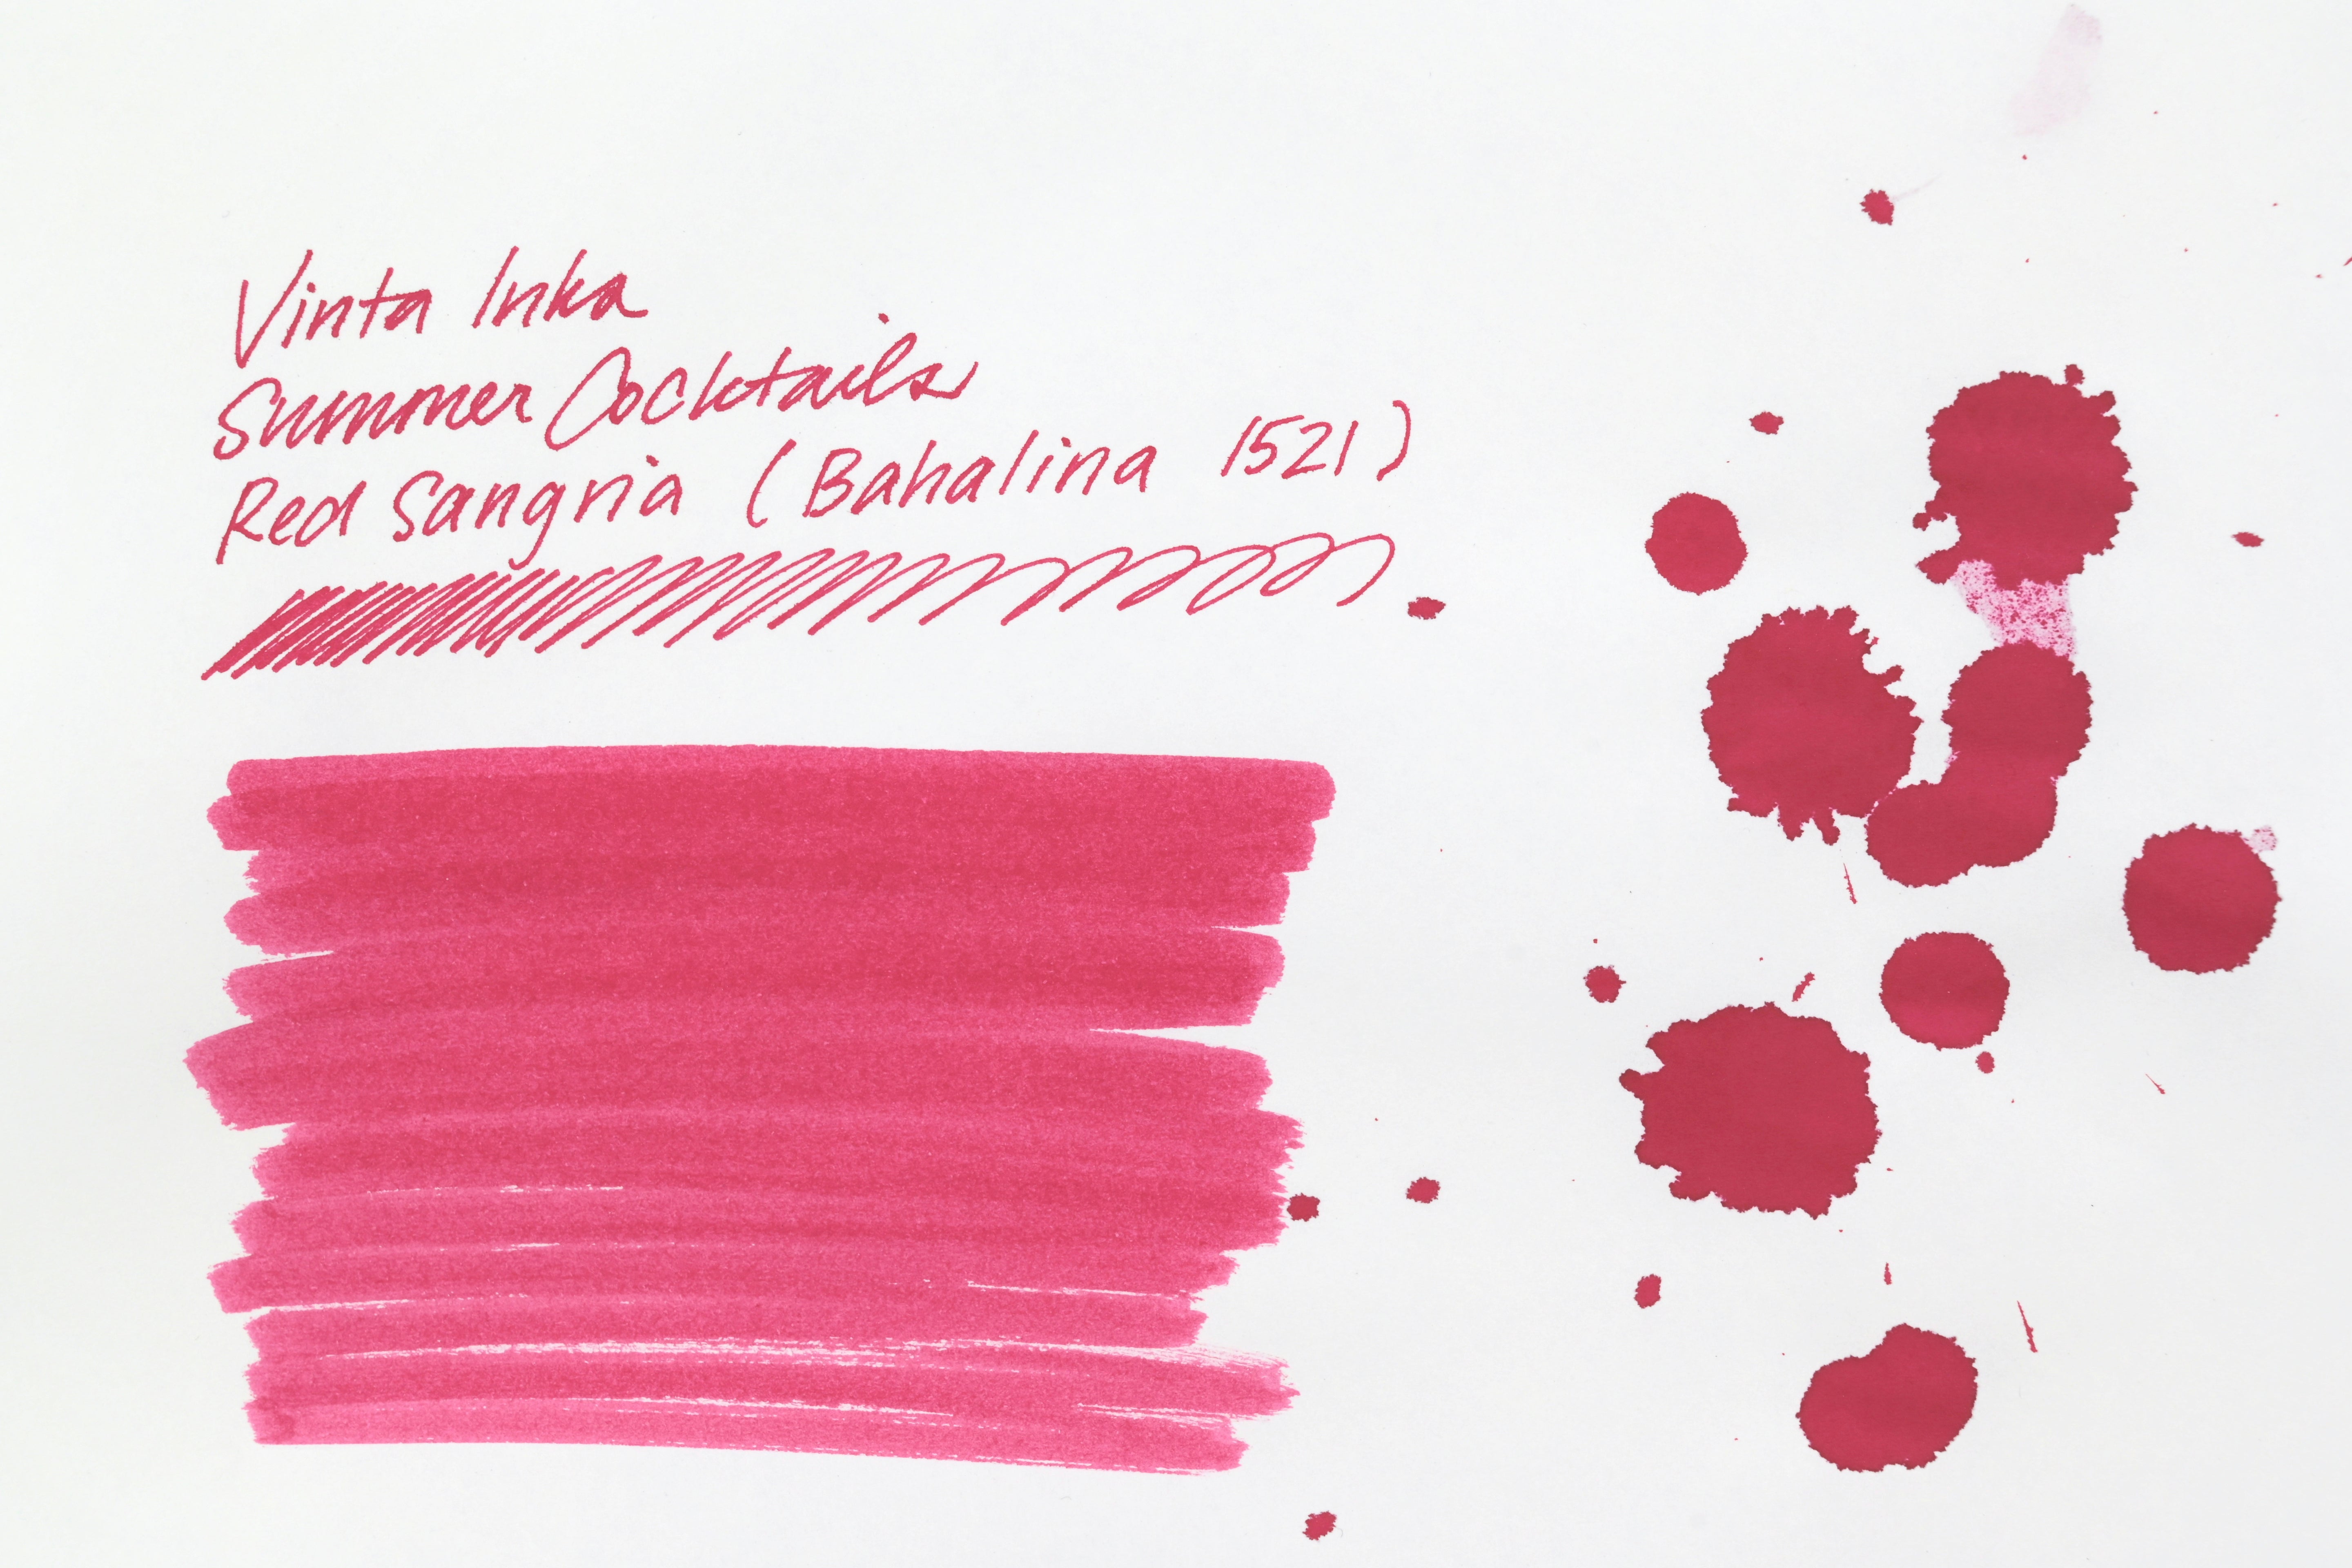 Vinta Inka
Summer Cocktails
Red Sangria (Bahalina 1521)